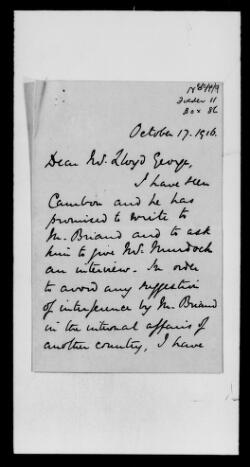 Folder 11
Box 86
October 17. 1916.
Dear Mr. Lloyd George,
I have seen
Cambon and he has
promised to write to
M. Briand and to ask
him to give Mr. Murdoch
an interview. In order
to avoid any suggestion
of interference by M. Briand
in the internal affairs of
another country, I have